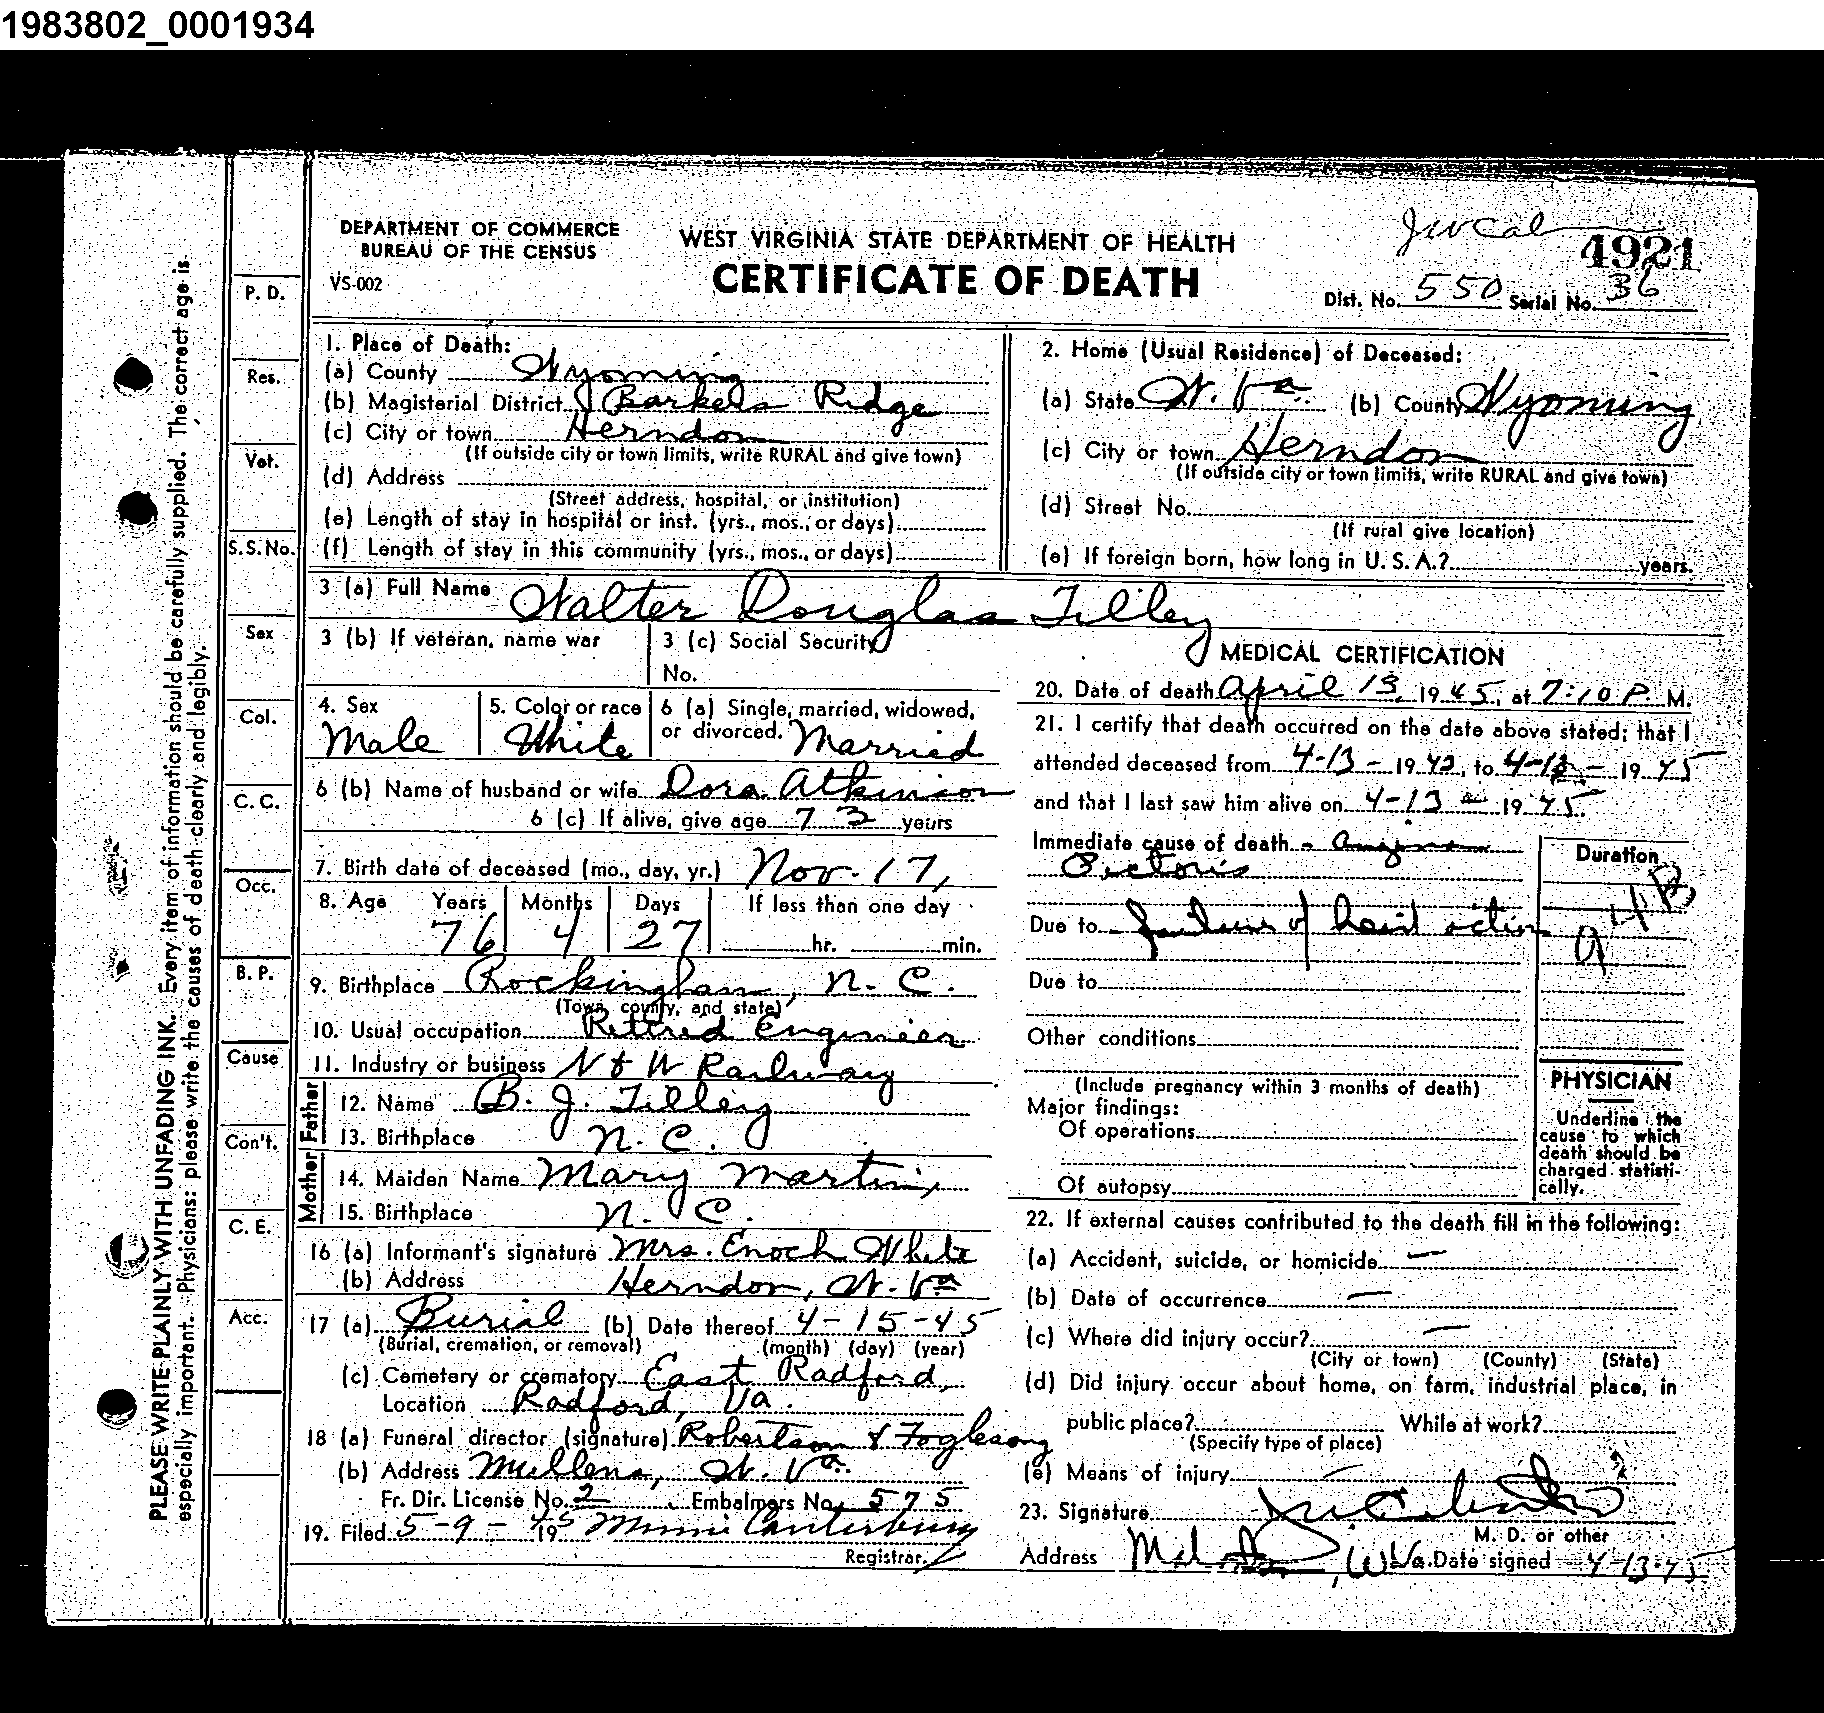 1983802_0001934
DEPARTMENT OF COMMERCE
BUREAU OF THE CENSUS
VS-002
WEST VIRGINIA STATE DEPARTMENT OF HEALTH
CERTIFICATE OF DEATH
4921
Dist. No. 550 Serial No. 36
PLEASE WRITE PLAINLY WITH UNFADING INK. Every item of information should be carefully supplied. The correct age is
especially important. Physicians: please write the causes of death clearly and legibly.
P. D.
Res.
Vet.
S.S.No.
Sex
Col.
C. C.
Occ.
B. P.
Cause
Con't.
C. E.
Acc.
1. Place of Death:
(a) County Wyoming
(b) Magisterial District Barkers Ridge
(c) City or town Herndon
(If outside city or town limits, write RURAL and give town)
(d) Address
(Street address, hospital, or institution)
(e) Length of stay in hospital or inst. (yrs., mos., or days)
(f) Length of stay in this community (yrs., mos., or days)
2. Home (Usual Residence) of Deceased:
(a) State W. Va. (b) County Wyoming
(c) City or town Herndon
(If outside city or town limits, write RURAL and give town)
(d) Street No.
(If rural give location)
(e) If foreign born, how long in U. S. A.? years.
3 (a) Full Name Walter Douglas Tilley
3 (b) If veteran, name war
3 (c) Social Security
No.
4. Sex
Male
5. Color or race
White
6 (a) Single, married, widowed,
or divorced. Married
6 (b) Name of husband or wife Dora Atkinson
6 (c) If alive, give age 73 years
7. Birth date of deceased (mo., day, yr.) Nov. 17,
8. Age Years Months Days If less than one day
76 4 27 hr. min.
9. Birthplace Rockingham, N. C.
(Town, county, and state)
10. Usual occupation Retired Engineer
11. Industry or business N & W Railway
Father
12. Name B. J. Tilley
13. Birthplace N. C.
Mother
14. Maiden Name Mary Martin,
15. Birthplace N. C.
16 (a) Informant's signature Mrs. Enoch White
(b) Address Herndon, W. Va
17 (a) Burial (b) Date thereof 4-15-45
(Burial, cremation, or removal) (month) (day) (year)
(c) Cemetery or crematory East Radford,
Location Radford, Va.
18 (a) Funeral director (signature) Robertson & Foglesong
(b) Address Mullens, W. Va.
Fr. Dir. License No. 2 Embalmers No. 575
19. Filed 5-9-1945 Minnie Canterbury
Registrar.
MEDICAL CERTIFICATION
20. Date of death April 13, 1945, at 7:10 P. M.
21. I certify that death occurred on the date above stated; that I
attended deceased from 4-13-1942, to 4-13-1945
and that I last saw him alive on 4-13-1945
Immediate cause of death Angina
Pectoris
Due to failure of heart action
Due to
Other conditions
(Include pregnancy within 3 months of death)
Major findings:
Of operations
Of autopsy
Duration
94B
PHYSICIAN
Underline the
cause to which
death should be
charged statisti-
cally.
22. If external causes contributed to the death fill in the following:
(a) Accident, suicide, or homicide —
(b) Date of occurrence —
(c) Where did injury occur? —
(City or town) (County) (State)
(d) Did injury occur about home, on farm, industrial place, in
public place? While at work?
(Specify type of place)
(e) Means of injury —
23. Signature
M. D. or other
Address W Va. Date signed 4-13-45